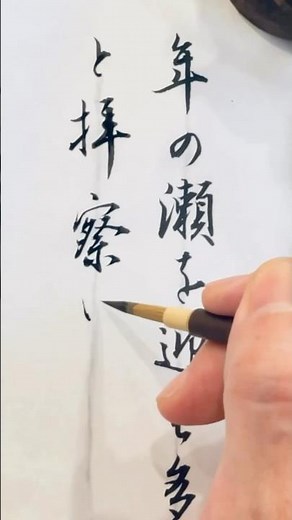 年の瀬を迎え多
と拝察